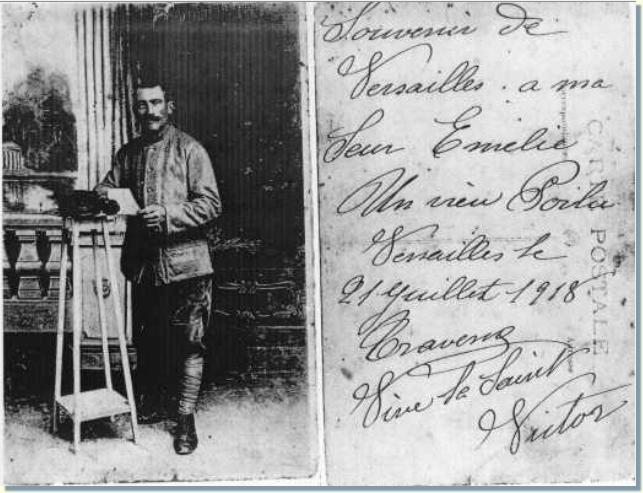 Souvenir de
Versailles. a ma
Seur Emelie
Un vieu Poilu
Versailles le
21 Juillet 1918
Vive la Saint
Victor
CARTE POSTALE